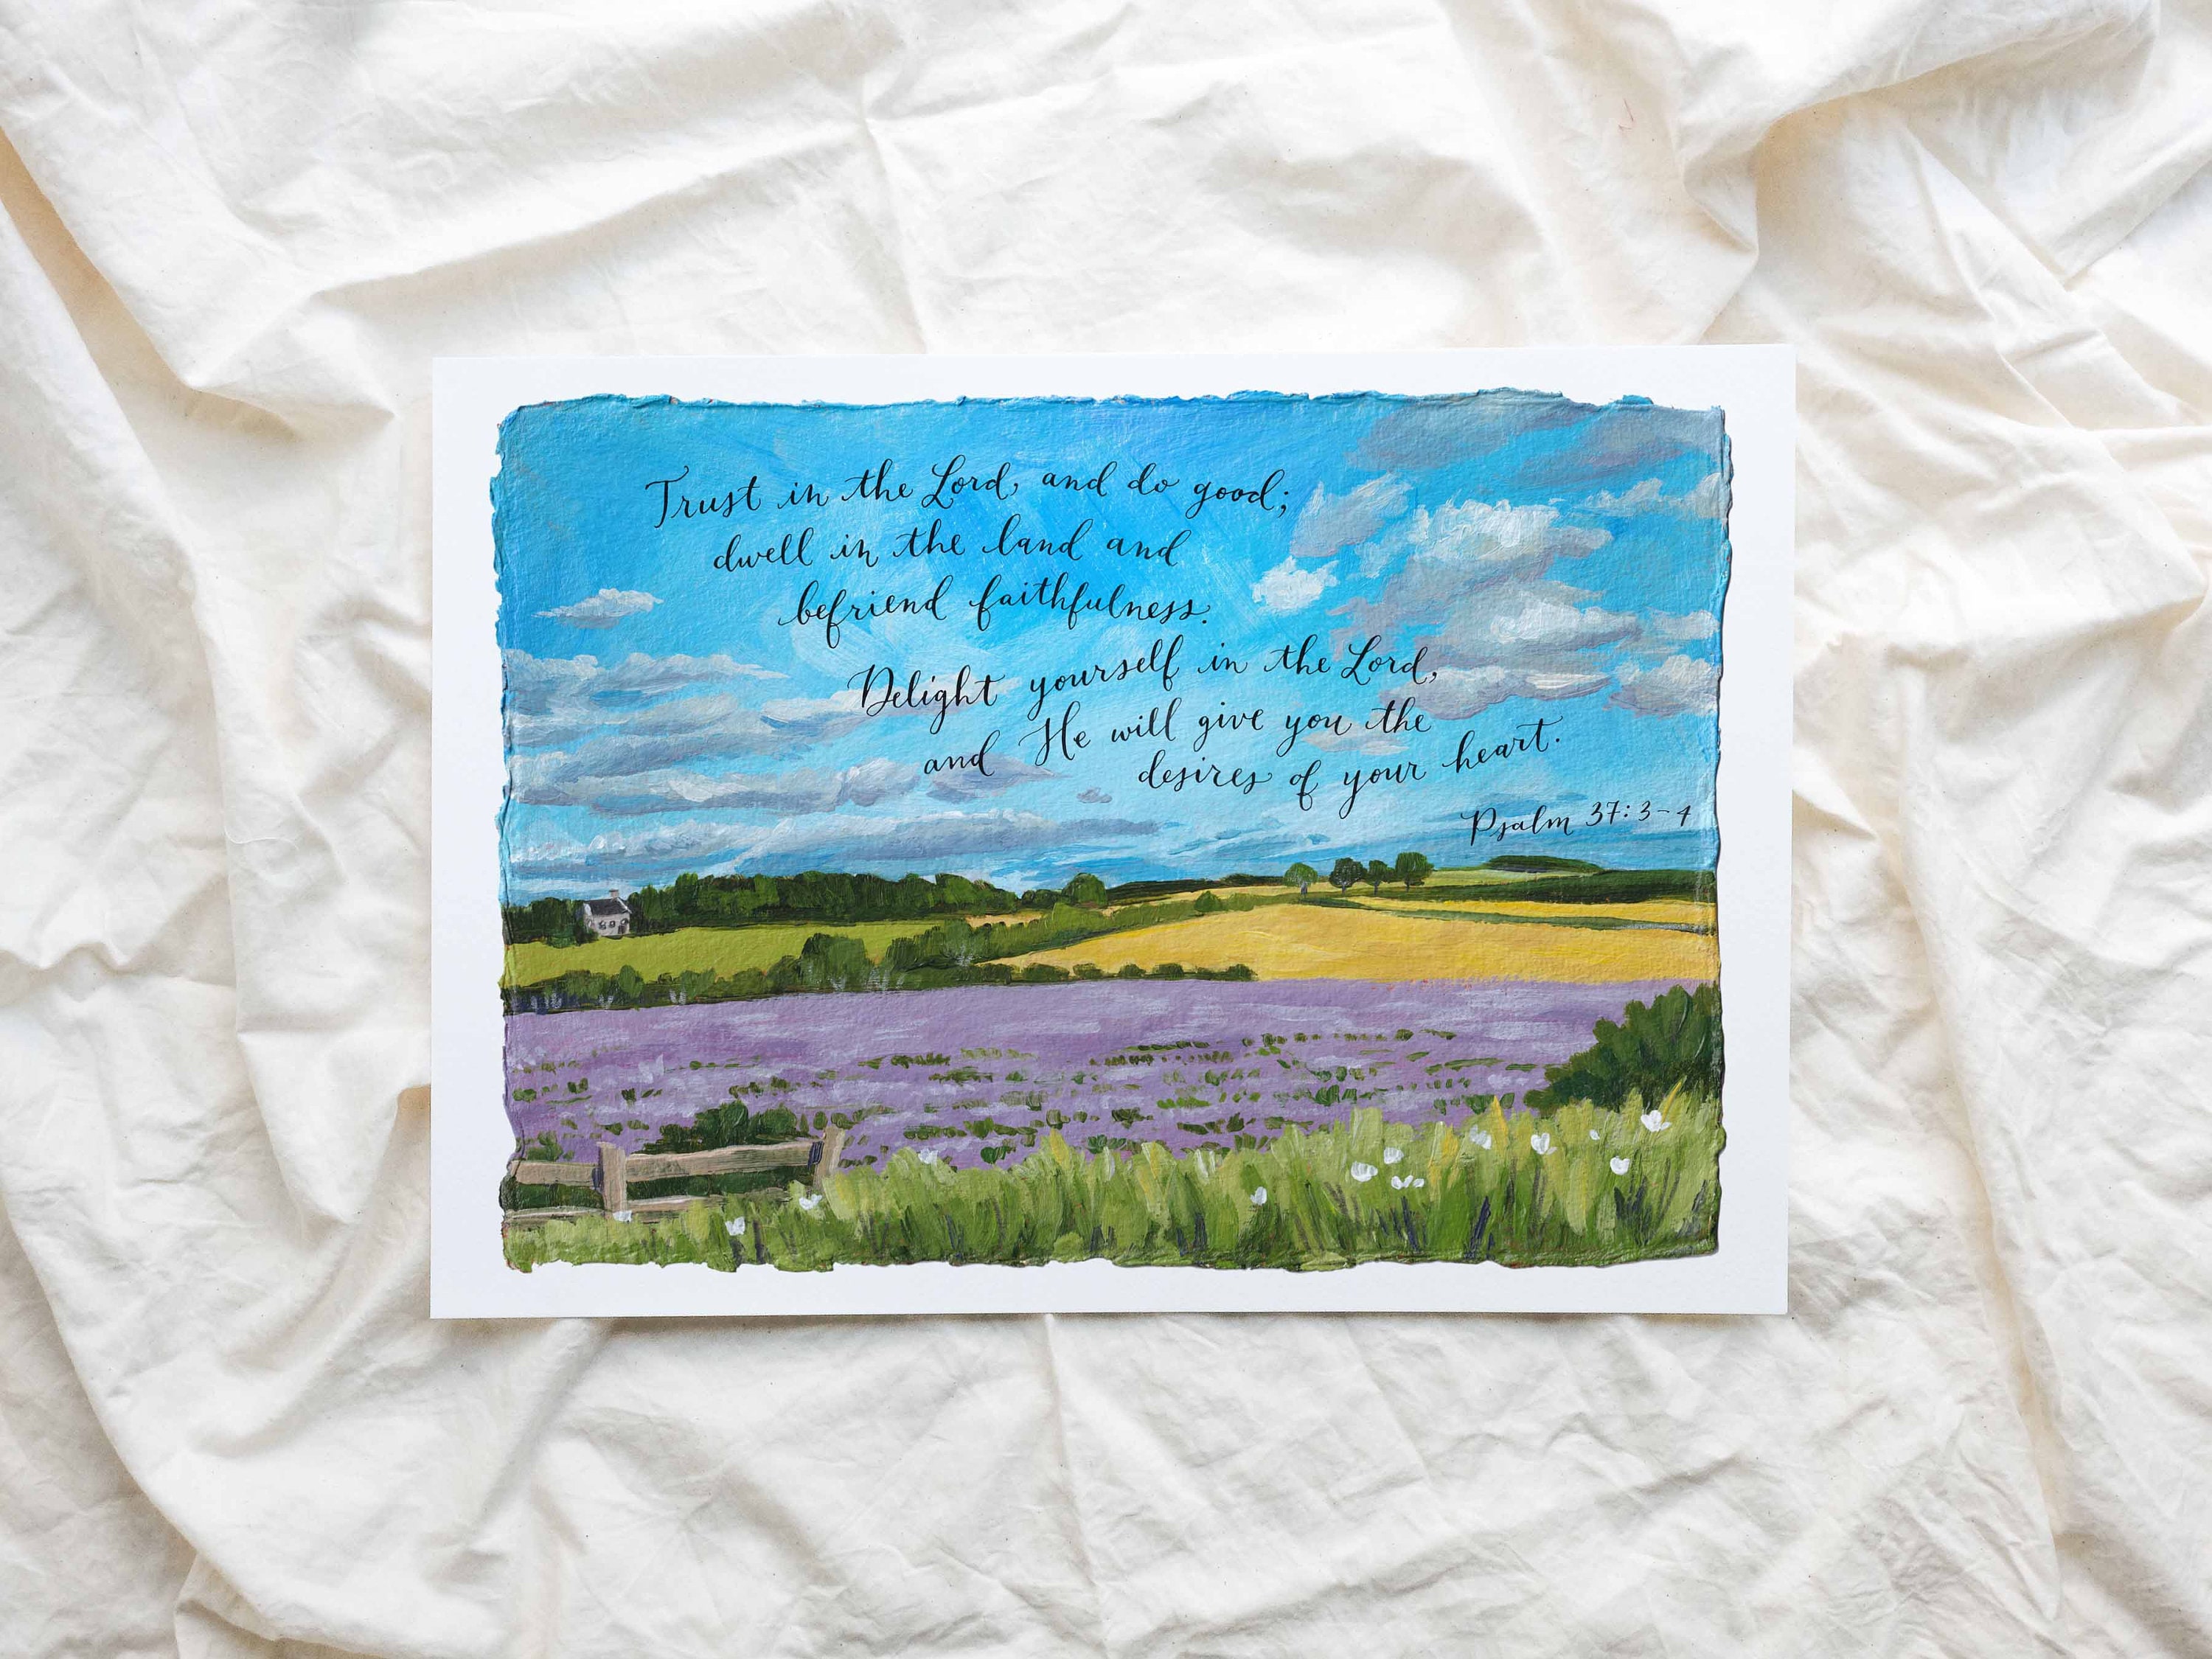 Trust in the Lord, and do good;
dwell in the land and
befriend faithfulness.
Delight yourself in the Lord,
and He will give you the
desires of your heart.
Psalm 37:3-4